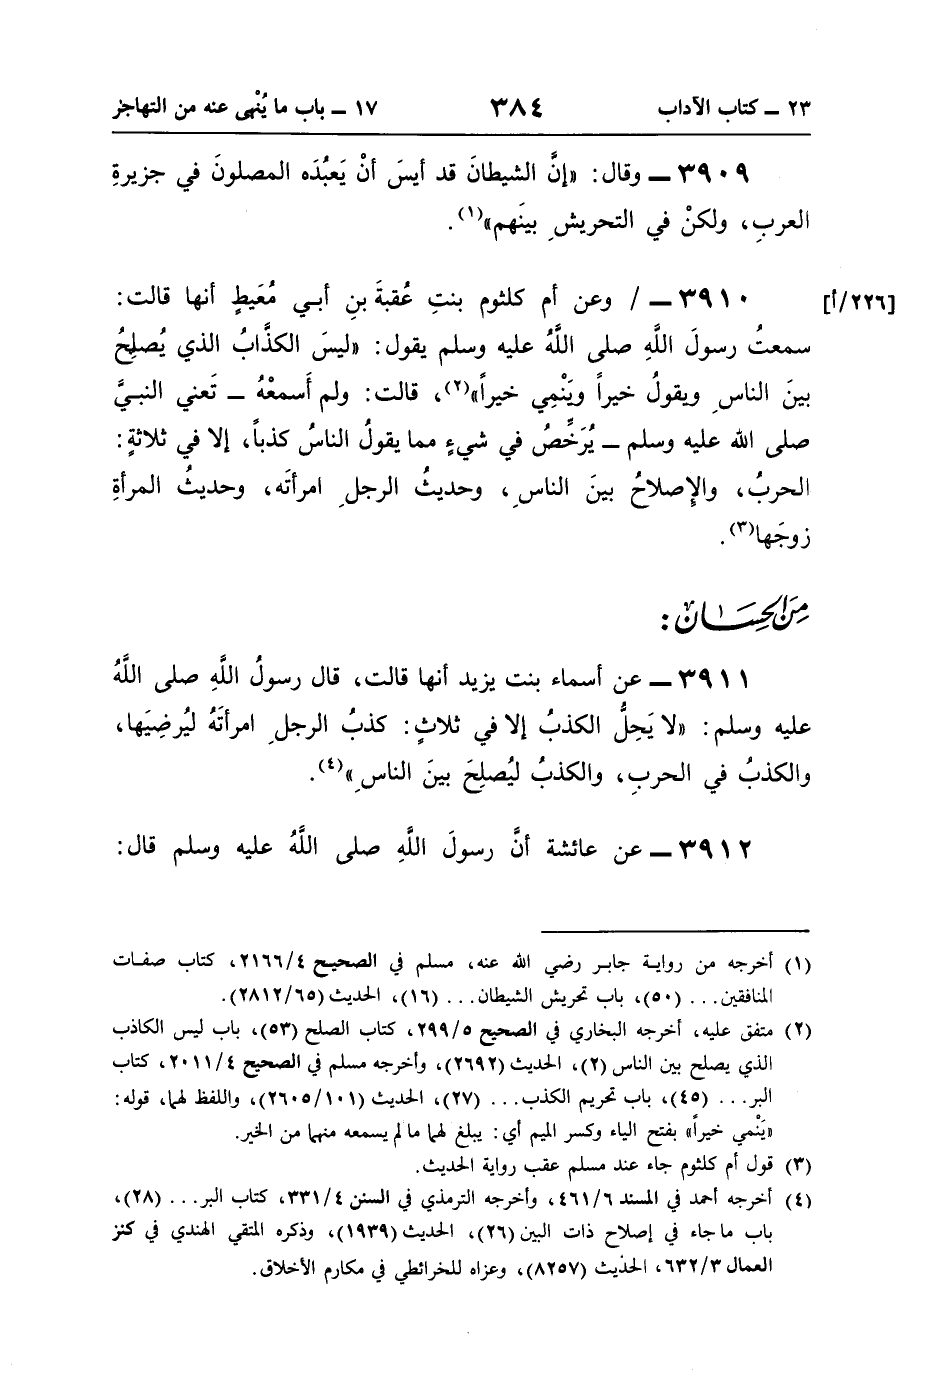 ٢٣ ــ كتاب الآداب ٣٨٤ ١٧ ــ باب ما يُنْهى عنه من التهاجر
٣٩٠٩ ــ وقال: «إنَّ الشيطانَ قد أيسَ أنْ يَعبُدَه المصلونَ في جزيرةِ
العربِ، ولكنْ في التحريشِ بينَهم»(١).
[٢٢٦/أ] ٣٩١٠ ــ / وعن أم كلثوم بنتِ عُقبةَ بنِ أبي مُعَيطٍ أنها قالت:
سمعتُ رسولَ اللَّهِ صلى اللَّهُ عليه وسلم يقول: «ليسَ الكذَّابُ الذي يُصلِحُ
بينَ الناسِ ويقولُ خيراً ويَنْمِي خيراً»(٢)، قالت: ولم أَسمعْهُ ــ تَعني النبيَّ
صلى الله عليه وسلم ــ يُرَخِّصُ في شيءٍ مما يقولُ الناسُ كذباً، إلا في ثلاثةٍ:
الحربُ، والإِصلاحُ بينَ الناسِ، وحديثُ الرجلِ امرأتَه، وحديثُ المرأةِ
زوجَها(٣).
مِنَ الحِسَان:
٣٩١١ ــ عن أسماء بنت يزيد أنها قالت، قال رسولُ اللَّهِ صلى اللَّهُ
عليه وسلم: «لا يَحِلُّ الكذبُ إلا في ثلاثٍ: كذبُ الرجلِ امرأتَهُ ليُرضِيَها،
والكذبُ في الحربِ، والكذبُ ليُصلِحَ بينَ الناسِ»(٤).
٣٩١٢ ــ عن عائشة أنَّ رسولَ اللَّهِ صلى اللَّهُ عليه وسلم قال:
(١) أخرجه من رواية جابر رضي الله عنه، مسلم في الصحيح ٢١٦٦/٤، كتاب صفات
المنافقين... (٥٠)، باب تحريش الشيطان... (١٦)، الحديث (٢٨١٢/٦٥).
(٢) متفق عليه، أخرجه البخاري في الصحيح ٢٩٩/٥، كتاب الصلح (٥٣)، باب ليس الكاذب
الذي يصلح بين الناس (٢)، الحديث (٢٦٩٢)، وأخرجه مسلم في الصحيح ٢٠١١/٤، كتاب
البر... (٤٥)، باب تحريم الكذب... (٢٧)، الحديث (٢٦٠٥/١٠١)، واللفظ لهما، قوله:
«يَنْمي خيراً» بفتح الياء وكسر الميم أي: يبلغ لهما ما لم يسمعه منهما من الخير.
(٣) قول أم كلثوم جاء عند مسلم عقب رواية الحديث.
(٤) أخرجه أحمد في المسند ٤٦١/٦، وأخرجه الترمذي في السنن ٣٣١/٤، كتاب البر... (٢٨)،
باب ما جاء في إصلاح ذات البين (٢٦)، الحديث (١٩٣٩)، وذكره المتقي الهندي في كنز
العمال ٦٣٢/٣، الحديث (٨٢٥٧)، وعزاه للخرائطي في مكارم الأخلاق.